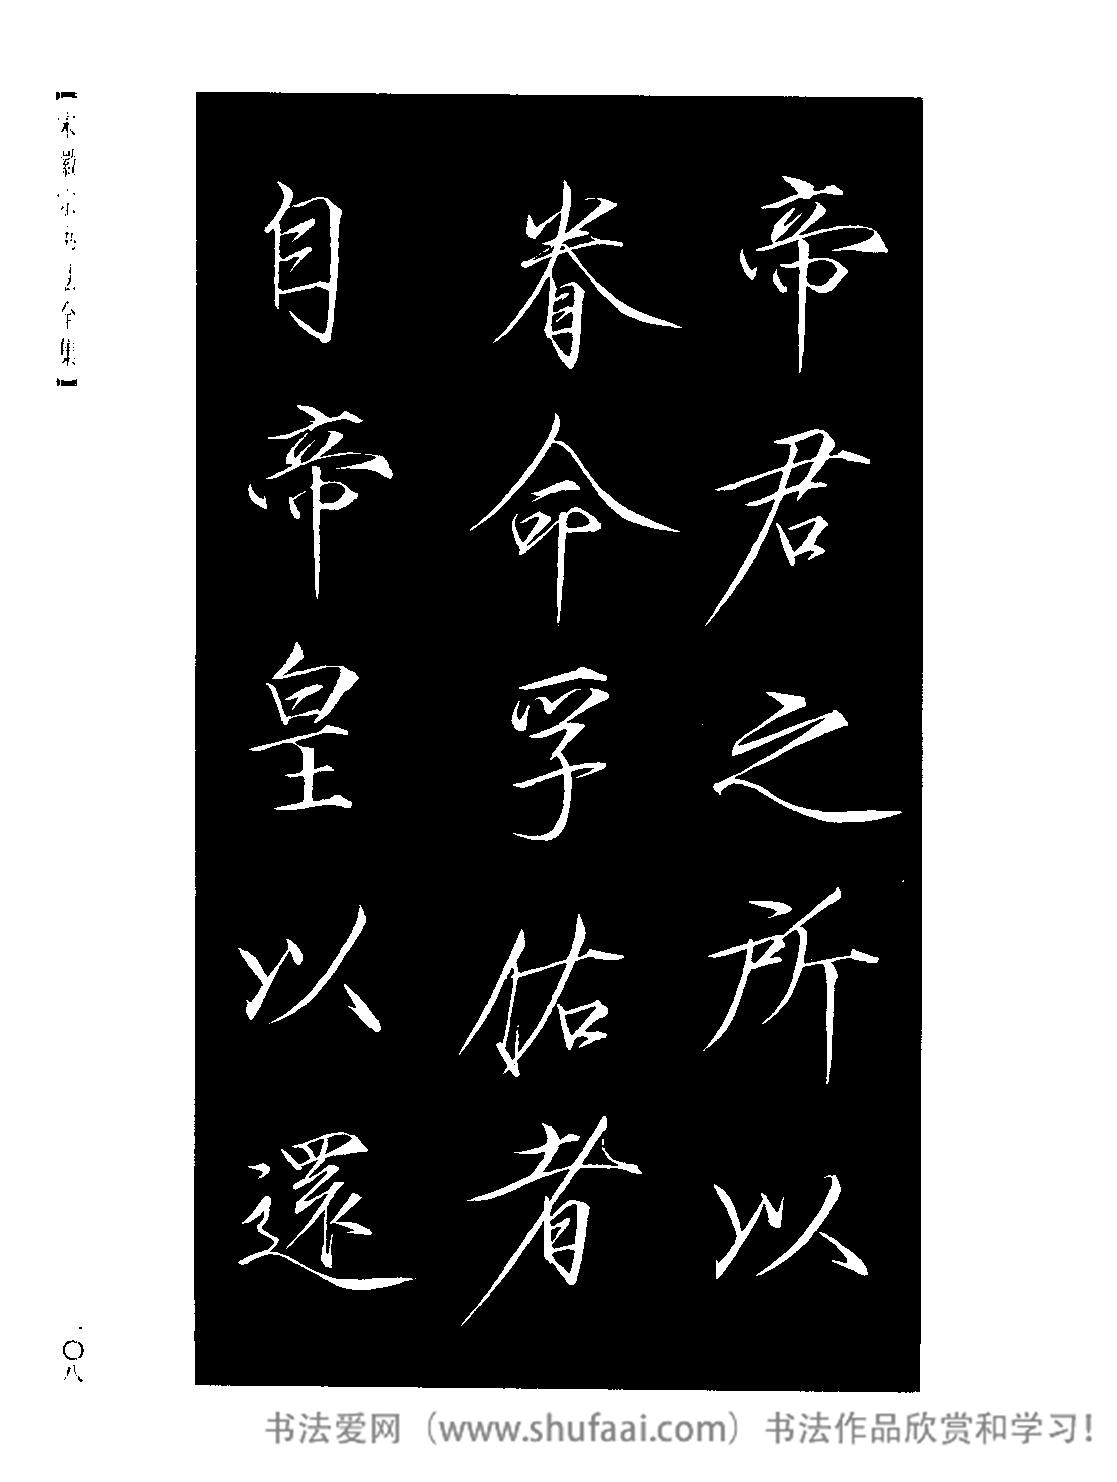 帝君之所以
眷命孚佑者
自帝皇以還
【宋徽宗書法全集】
一〇八
书法爱网（www.shufaai.com）书法作品欣赏和学习！